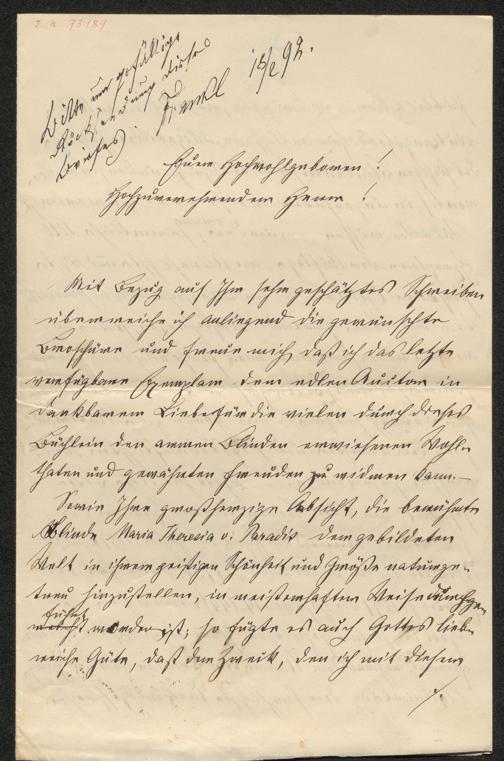 J. N. 73189
Bitte um gefällige
Rücksendung dieses
Briefes.
Frankl 15/2 92.
Euer Hochwohlgeboren!
Hochzuverehrendem Herrn!
Mit Bezug auf Ihr sehr geschätztes Schreiben
überreiche ich anliegend die gewünschte
Broschüre und freue mich, daß ich das letzte
verfügbare Exemplar dem edlen Autor in
dankbarem Liebe für die vielen durch dieses
Büchlein den armen Blinden erwiesenen Wohl-
thaten und gewährten Freuden zu widmen kann. –
Sowie Ihre großherzige Absicht, die berühmte
Blinde Maria Theresia v. Paradis dem gebildeten
Welt in ihrem geistigen Schönheit und Größe naturge-
treu hinzustellen, in meisterhafter Weise durchge-
führt
worden ist; so fügte es auch Gottes lieb-
reiche Güte, daß dem Zweck, den ich mit diesem
./.